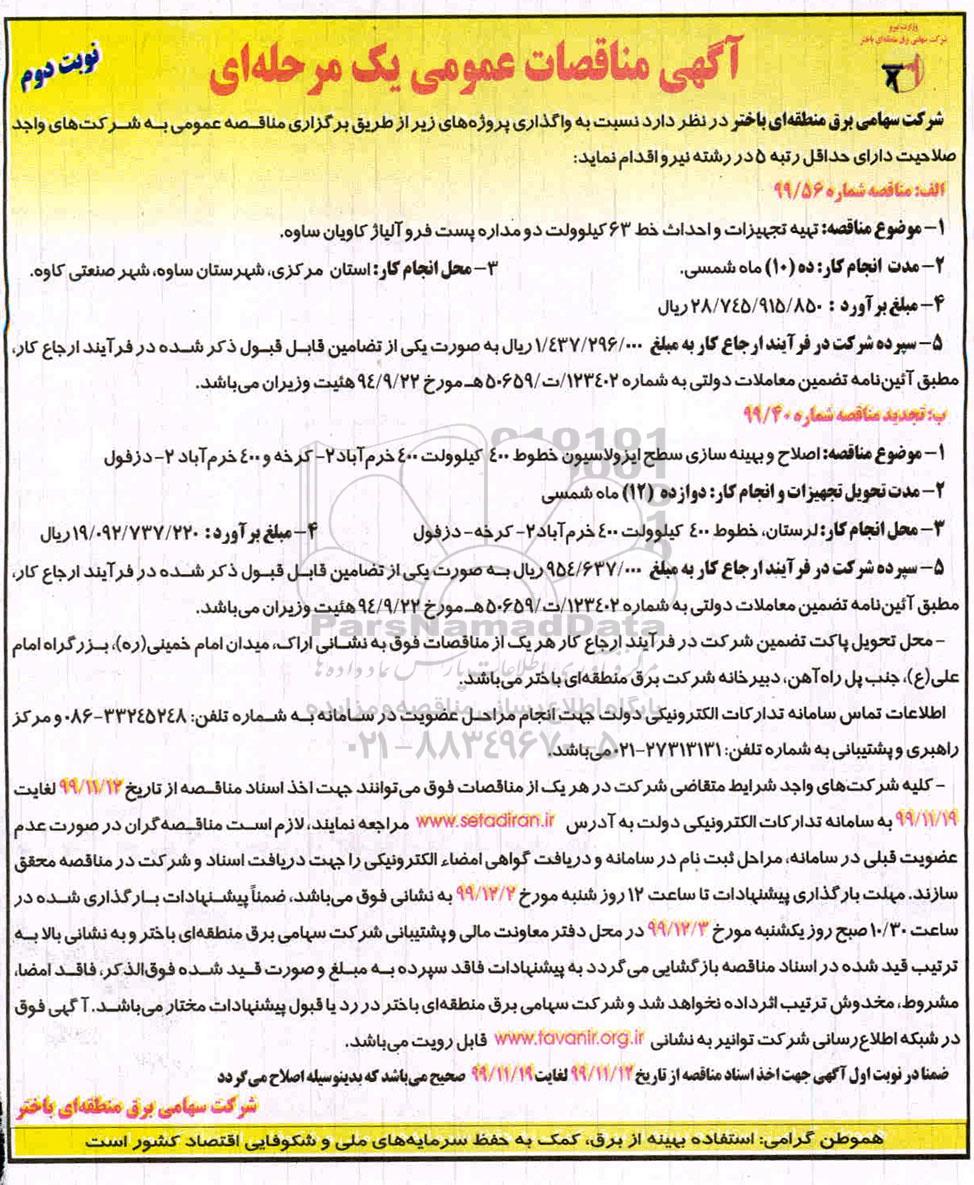 وزارت نیرو
شرکت سهامی برق منطقه‌ای باختر
نوبت دوم
آگهی مناقصات عمومی یک مرحله‌ای
شرکت سهامی برق منطقه‌ای باختر در نظر دارد نسبت به واگذاری پروژه‌های زیر از طریق برگزاری مناقصه عمومی به شرکت‌های واجد
صلاحیت دارای حداقل رتبه ۵ در رشته نیرو اقدام نماید:
الف: مناقصه شماره ۹۹/۵۶
۱- موضوع مناقصه: تهیه تجهیزات و احداث خط ۶۳ کیلوولت دو مداره پست فرو آلیاژ کاویان ساوه.
۲- مدت انجام کار: ده (۱۰) ماه شمسی. ۳- محل انجام کار: استان مرکزی، شهرستان ساوه، شهر صنعتی کاوه.
۴- مبلغ برآورد : ۲۸/۷۴۵/۹۱۵/۸۵۰ ریال
۵- سپرده شرکت در فرآیند ارجاع کار به مبلغ ۱/۴۳۷/۲۹۶/۰۰۰ ریال به صورت یکی از تضامین قابل قبول ذکر شده در فرآیند ارجاع کار،
مطبق آئین‌نامه تضمین معاملات دولتی به شماره ۱۲۳۴۰۲/ت/۵۰۶۵۹هـ مورخ ۹۴/۹/۲۲ هئیت وزیران می‌باشد.
ب: تجدید مناقصه شماره ۹۹/۴۰
۱- موضوع مناقصه: اصلاح و بهینه سازی سطح ایزولاسیون خطوط ۴۰۰ کیلوولت ۴۰۰ خرم‌آباد۲- کرخه و ۴۰۰ خرم‌آباد ۲- دزفول
۲- مدت تحویل تجهیزات و انجام کار: دوازده (۱۲) ماه شمسی
۳- محل انجام کار: لرستان، خطوط ۴۰۰ کیلوولت ۴۰۰ خرم‌آباد۲- کرخه- دزفول ۴- مبلغ برآورد : ۱۹/۰۹۲/۷۳۷/۲۲۰ ریال
۵- سپرده شرکت در فرآیند ارجاع کار به مبلغ ۹۵۴/۶۳۷/۰۰۰ ریال به صورت یکی از تضامین قابل قبول ذکر شده در فرآیند ارجاع کار،
مطبق آئین‌نامه تضمین معاملات دولتی به شماره ۱۲۳۴۰۲/ت/۵۰۶۵۹هـ مورخ ۹۴/۹/۲۲ هئیت وزیران می‌باشد.
ParsNamadData
- محل تحویل پاکت تضمین شرکت در فرآیند ارجاع کار هر یک از مناقصات فوق به نشانی اراک، میدان امام خمینی(ره)، بزرگراه امام
علی(ع)، جنب پل راه‌آهن، دبیرخانه شرکت برق منطقه‌ای باختر می‌باشد.
پایگاه اطلاع رسانی مناقصه و مزایده
اطلاعات تماس سامانه تدارکات الکترونیکی دولت جهت انجام مراحل عضویت در سامانه به شماره تلفن: ۳۳۲۴۵۲۴۸-۰۸۶ و مرکز
۰۲۱-۸۸۳۴۹۶۷۰-۵
راهبری و پشتیبانی به شماره تلفن: ۲۷۳۱۳۱۳۱-۰۲۱ می‌باشد.
- کلیه شرکت‌های واجد شرایط متقاضی شرکت در هر یک از مناقصات فوق می‌توانند جهت اخذ اسناد مناقصه از تاریخ ۹۹/۱۱/۱۲ لغایت
۹۹/۱۱/۱۹ به سامانه تدارکات الکترونیکی دولت به آدرس www.setadiran.ir مراجعه نمایند، لازم است مناقصه‌گران در صورت عدم
عضویت قبلی در سامانه، مراحل ثبت نام در سامانه و دریافت گواهی امضاء الکترونیکی را جهت دریافت اسناد و شرکت در مناقصه محقق
سازند. مهلت بارگذاری پیشنهادات تا ساعت ۱۲ روز شنبه مورخ ۹۹/۱۲/۲ به نشانی فوق می‌باشد، ضمناً پیشنهادات بارگذاری شده در
ساعت ۱۰/۳۰ صبح روز یکشنبه مورخ ۹۹/۱۲/۳ در محل دفتر معاونت مالی و پشتیبانی شرکت سهامی برق منطقه‌ای باختر و به نشانی بالا به
ترتیب قید شده در اسناد مناقصه بازگشایی می‌گردد به پیشنهادات فاقد سپرده به مبلغ و صورت قید شده فوق‌الذکر، فاقد امضا،
مشروط، مخدوش ترتیب اثر داده نخواهد شد و شرکت سهامی برق منطقه‌ای باختر در رد یا قبول پیشنهادات مختار می‌باشد. آگهی فوق
در شبکه اطلاع‌رسانی شرکت توانیر به نشانی www.tavanir.org.ir قابل رویت می‌باشد.
ضمنا در نوبت اول آگهی جهت اخذ اسناد مناقصه از تاریخ ۹۹/۱۱/۱۲ لغایت ۹۹/۱۱/۱۹ صحیح می‌باشد که بدینوسیله اصلاح می‌گردد
شرکت سهامی برق منطقه‌ای باختر
هموطن گرامی: استفاده بهینه از برق، کمک به حفظ سرمایه‌های ملی و شکوفایی اقتصاد کشور است